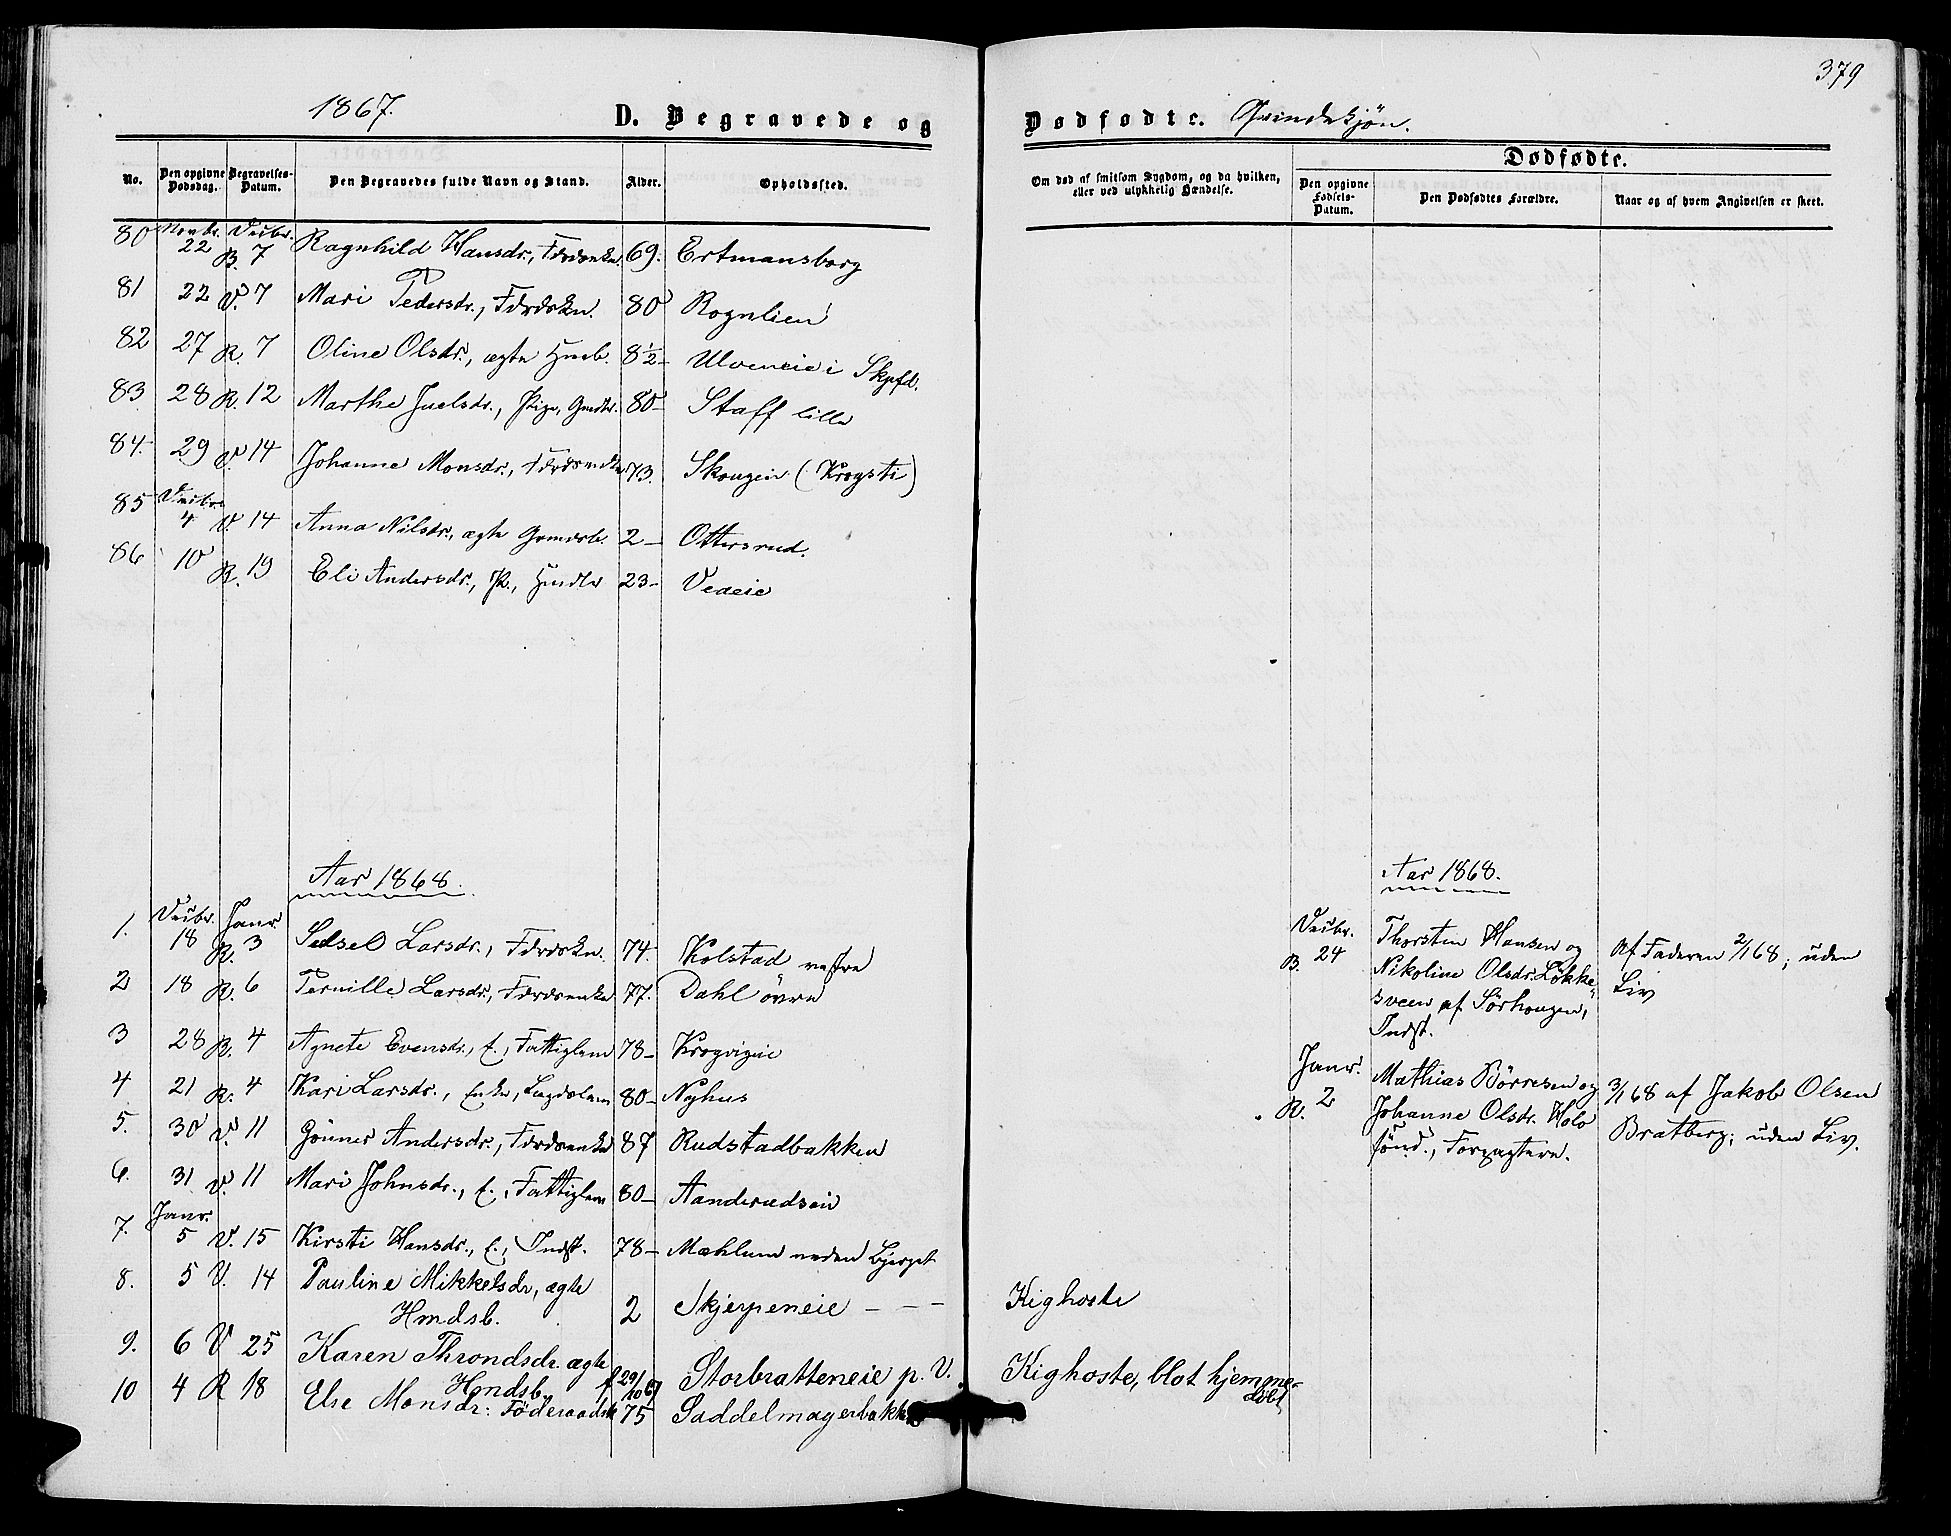 379
1867.
D. Begravede og Dødfødte. Qvindekjön.
No.
Den opgivne Dødsdag.
Begravelses-Datum.
Den Begravedes fulde Navn og Stand.
Alder.
Opholdssted.
Om død af smitsom Sygdom, og da hvilken, eller ved ulykkelig Hændelse.
Dødfødte.
Den opgivne Fødsels-Datum.
Den Dødfødtes Forældre.
Naar og af hvem Angivelsen er skeet.
80 Novbr. 22 Decbr. B. 7 Ragnhild Hansdr., Fdrdsenke. 69. Ertmansborg
81 22 V. 7 Mari Pedersdr., Fdrdskn. 80 Rognlien
82 27 R. 7 Oline Olsdr., ægte Hmb. 8½ – Ulveneie i Skpfd.
83 28 R. 12 Marthe Juelsdr., Pige, Gmdtr. 80 – Staff lille
84. 29 V. 14 Johanne Monsdr., Fdrdsenke 73. Skougen (Krogsti)
85 Decbr. 4 V. 14 Anna Nilsdr., ægte Grmdsb. 2 – Ottersrud.
86 10 R. 19 Eli Andersdr., P., Hmdtr 23 – Veaeie
Aar 1868.
1. Decbr. 18 Janr. R. 3 Sidsel Larsdr., Fdrdskn. 74. Kolstad vestre
2 18 R. 6 Pernille Larsdr., Fdrdsenke 77. Dahl övre
3 28 R. 4 Agnete Evensdr., E., Fattiglem 78 – Krogvigeie
4 21 R. 4 Kari Larsdr., Enke, Lægdslem 80 – Nyhus
5. 30 V. 11 Gönner Andersdr., Fdrdsenke 87 Rudstadbakken
6. 31 V. 11 Mari Johnsdr., E., Fattiglem 80 – Aanderudseie
7. Janr. 5 V. 15 Kirsti Hansdr., E., Indst. 78 – Mæhlum neden Bjerget
8. 5 V. 14 Pauline Mikkelsdr, ægte
Hmdsb. 2 Skjerpeneie – – – Kighoste
9. 6 V 25 Karen Throndsdr. ægte
Hmdsb. f 29/10 67 Storbratteneie p. V. Kighoste, blot hjemme-
döbt
10 4 R 18 Else Monsdr: Föderaadsk 75 Saddelmagerbakk
Aar 1868.
Decbr.
B. 24 Thorsten Hansen og
Nikoline Olsdr. Løkke-
sveen af Sörhougen,
Indst.
Af Faderen 2/1 68; uden
Liv
Janr.
R. 2 Mathias Börresen og
Johanne Olsdr. Holo
sönd., Forpagtere.
3/1 68 af Jakob Olsen
Bratberg; uden Liv.